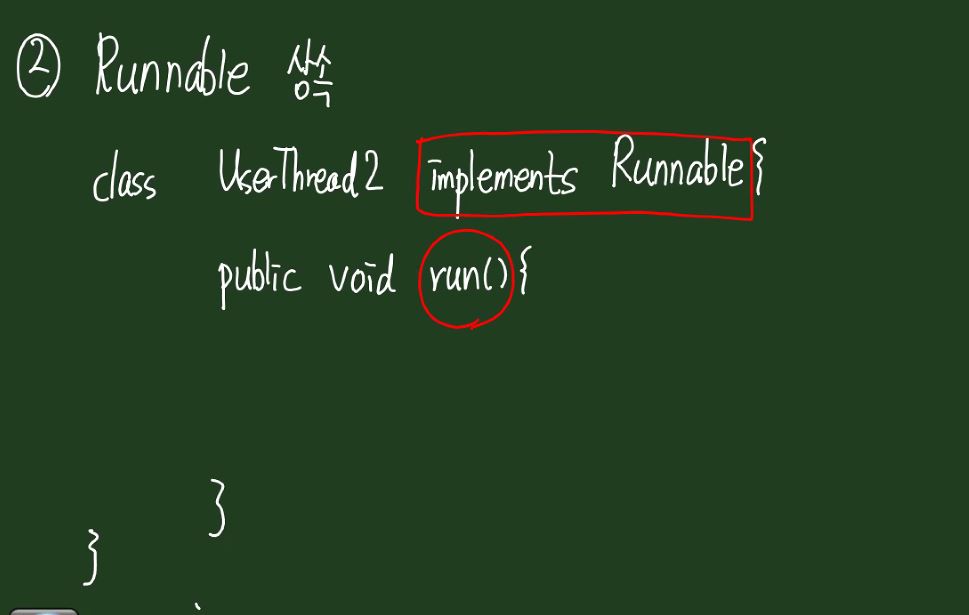 ② Runnable 상속
class UserThread2 implements Runnable{
public void run(){
}
}